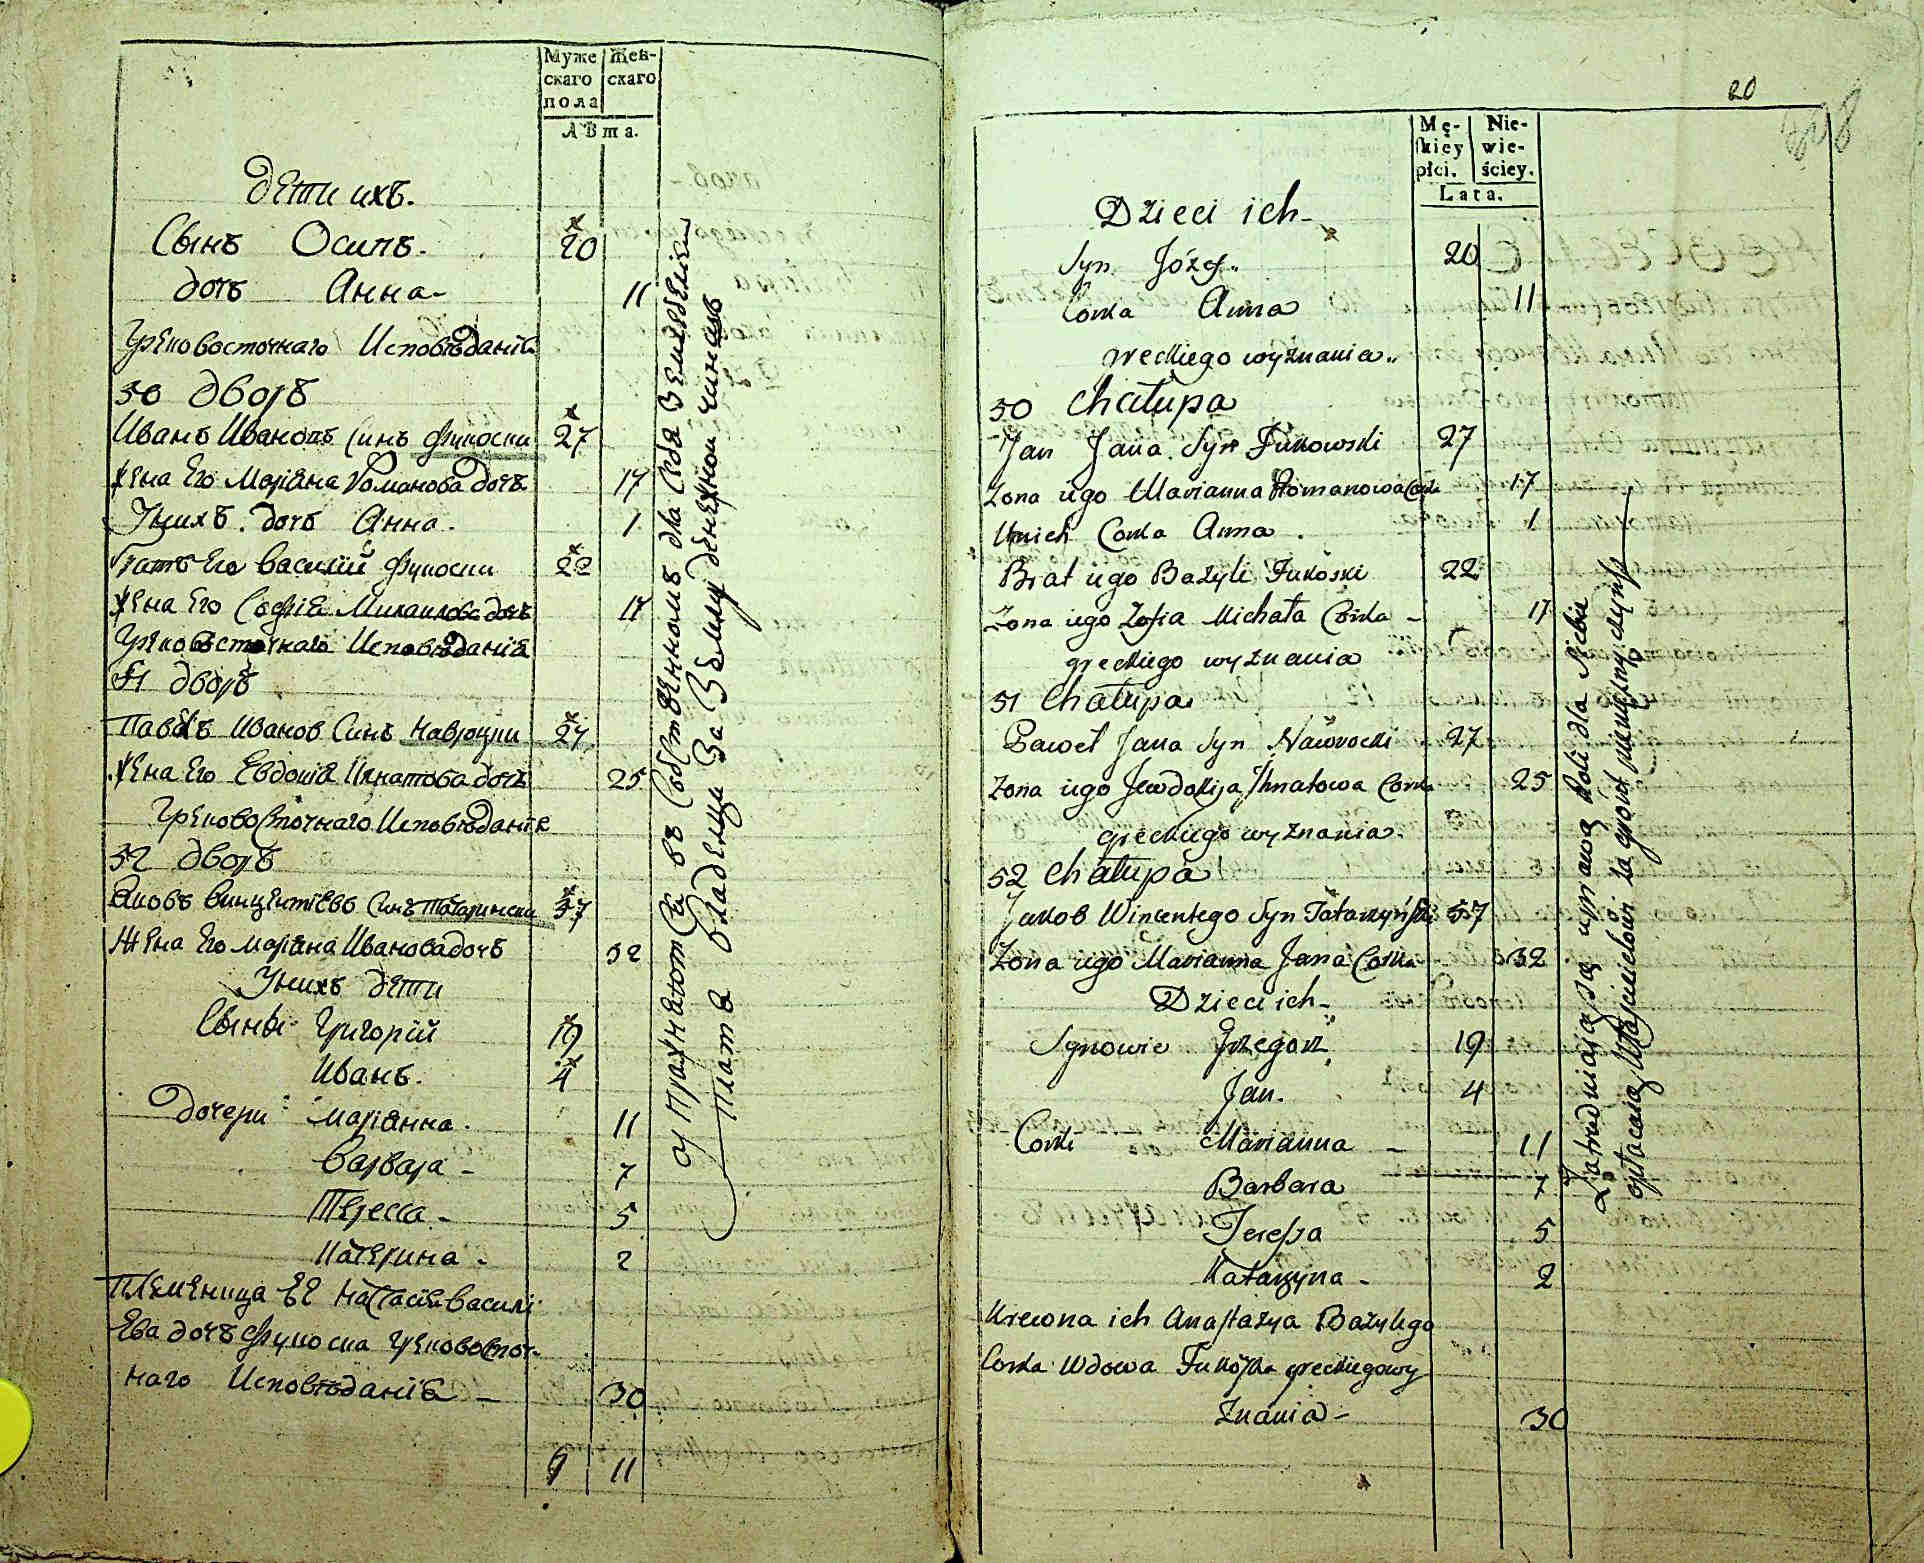 Муже
скаго
пола
Жен-
скаго
Лѣта.
Дети ихъ.
Сынъ Осипъ. 20
дочь Анна- 11
Грековосточнаго Исповѣданія
50 дворъ
Иванъ Ивановъ Синъ Фукоски 27
Жена Его Маріана Романова дочь 17
У нихъ дочь Анна. 1
Братъ Его Василий Фукоски 22
Жена Его Софія Михаилова дочь 17
Грековосточнаго Исповѣданія
51 дворъ
Павелъ Иванов Синъ Навроцки 27
Жена Его Евдокія Игнатова дочь 25
Грековосточнаго Исповѣданія
52 дворъ
Яковъ Винцентіевъ Синъ Татарински 57
Жена Его Маріана Иванова дочь 32
У нихъ дети
Сыны Григорій 19
Иванъ. 4
Дочери Маріанна. 11
Варвара - 7
Тересса - 5
Катерина - 2
Племеница Настасія Василі
Ева дочь Фукоска Грековосточ-
наго Исповѣданія - 30
9 11
упражняются въ Собственномъ для себя Земледеліи
плата владельцу за Землю денежной чиншъ
20
Mę-
skiey
płci.
Nie-
wie-
ściey.
Lata.
Dzieci ich-
Syn Józef. 20
Corka Anna 11
greckiego wyznania.
50 Chałupa
Jan Jana Syn Fukowski 27
Zona iego Marianna Romanowa Corka 17
Unich Corka Anna. 1
Brat iego Bazyli Fukoski 22
Zona iego Zofia Michała Corka - 17
greckiego wyznania
51 Chałupa
Paweł Jana Syn Nawrocki 27
Zona iego Jewdokija Ihnatowa Corka 25
greckiego wyznania.
52 Chałupa
Jakob Wincentego Syn Tatarzyński 57
Zona iego Marianna Jana Corka 32
Dzieci ich-
Synowie Grzegorz 19
Jan. 4
Corki Marianna - 11
Barbara 7
Teressa 5
Katarzyna - 2
Krewna ich Anastazya Bazylego
Corka Wdowa Fukoska greckiego wy
znania - 30
Zatrudniaią się uprawą Roli dla siebie
opłacaią Właścicielowi za grunt pieniężny czynsz